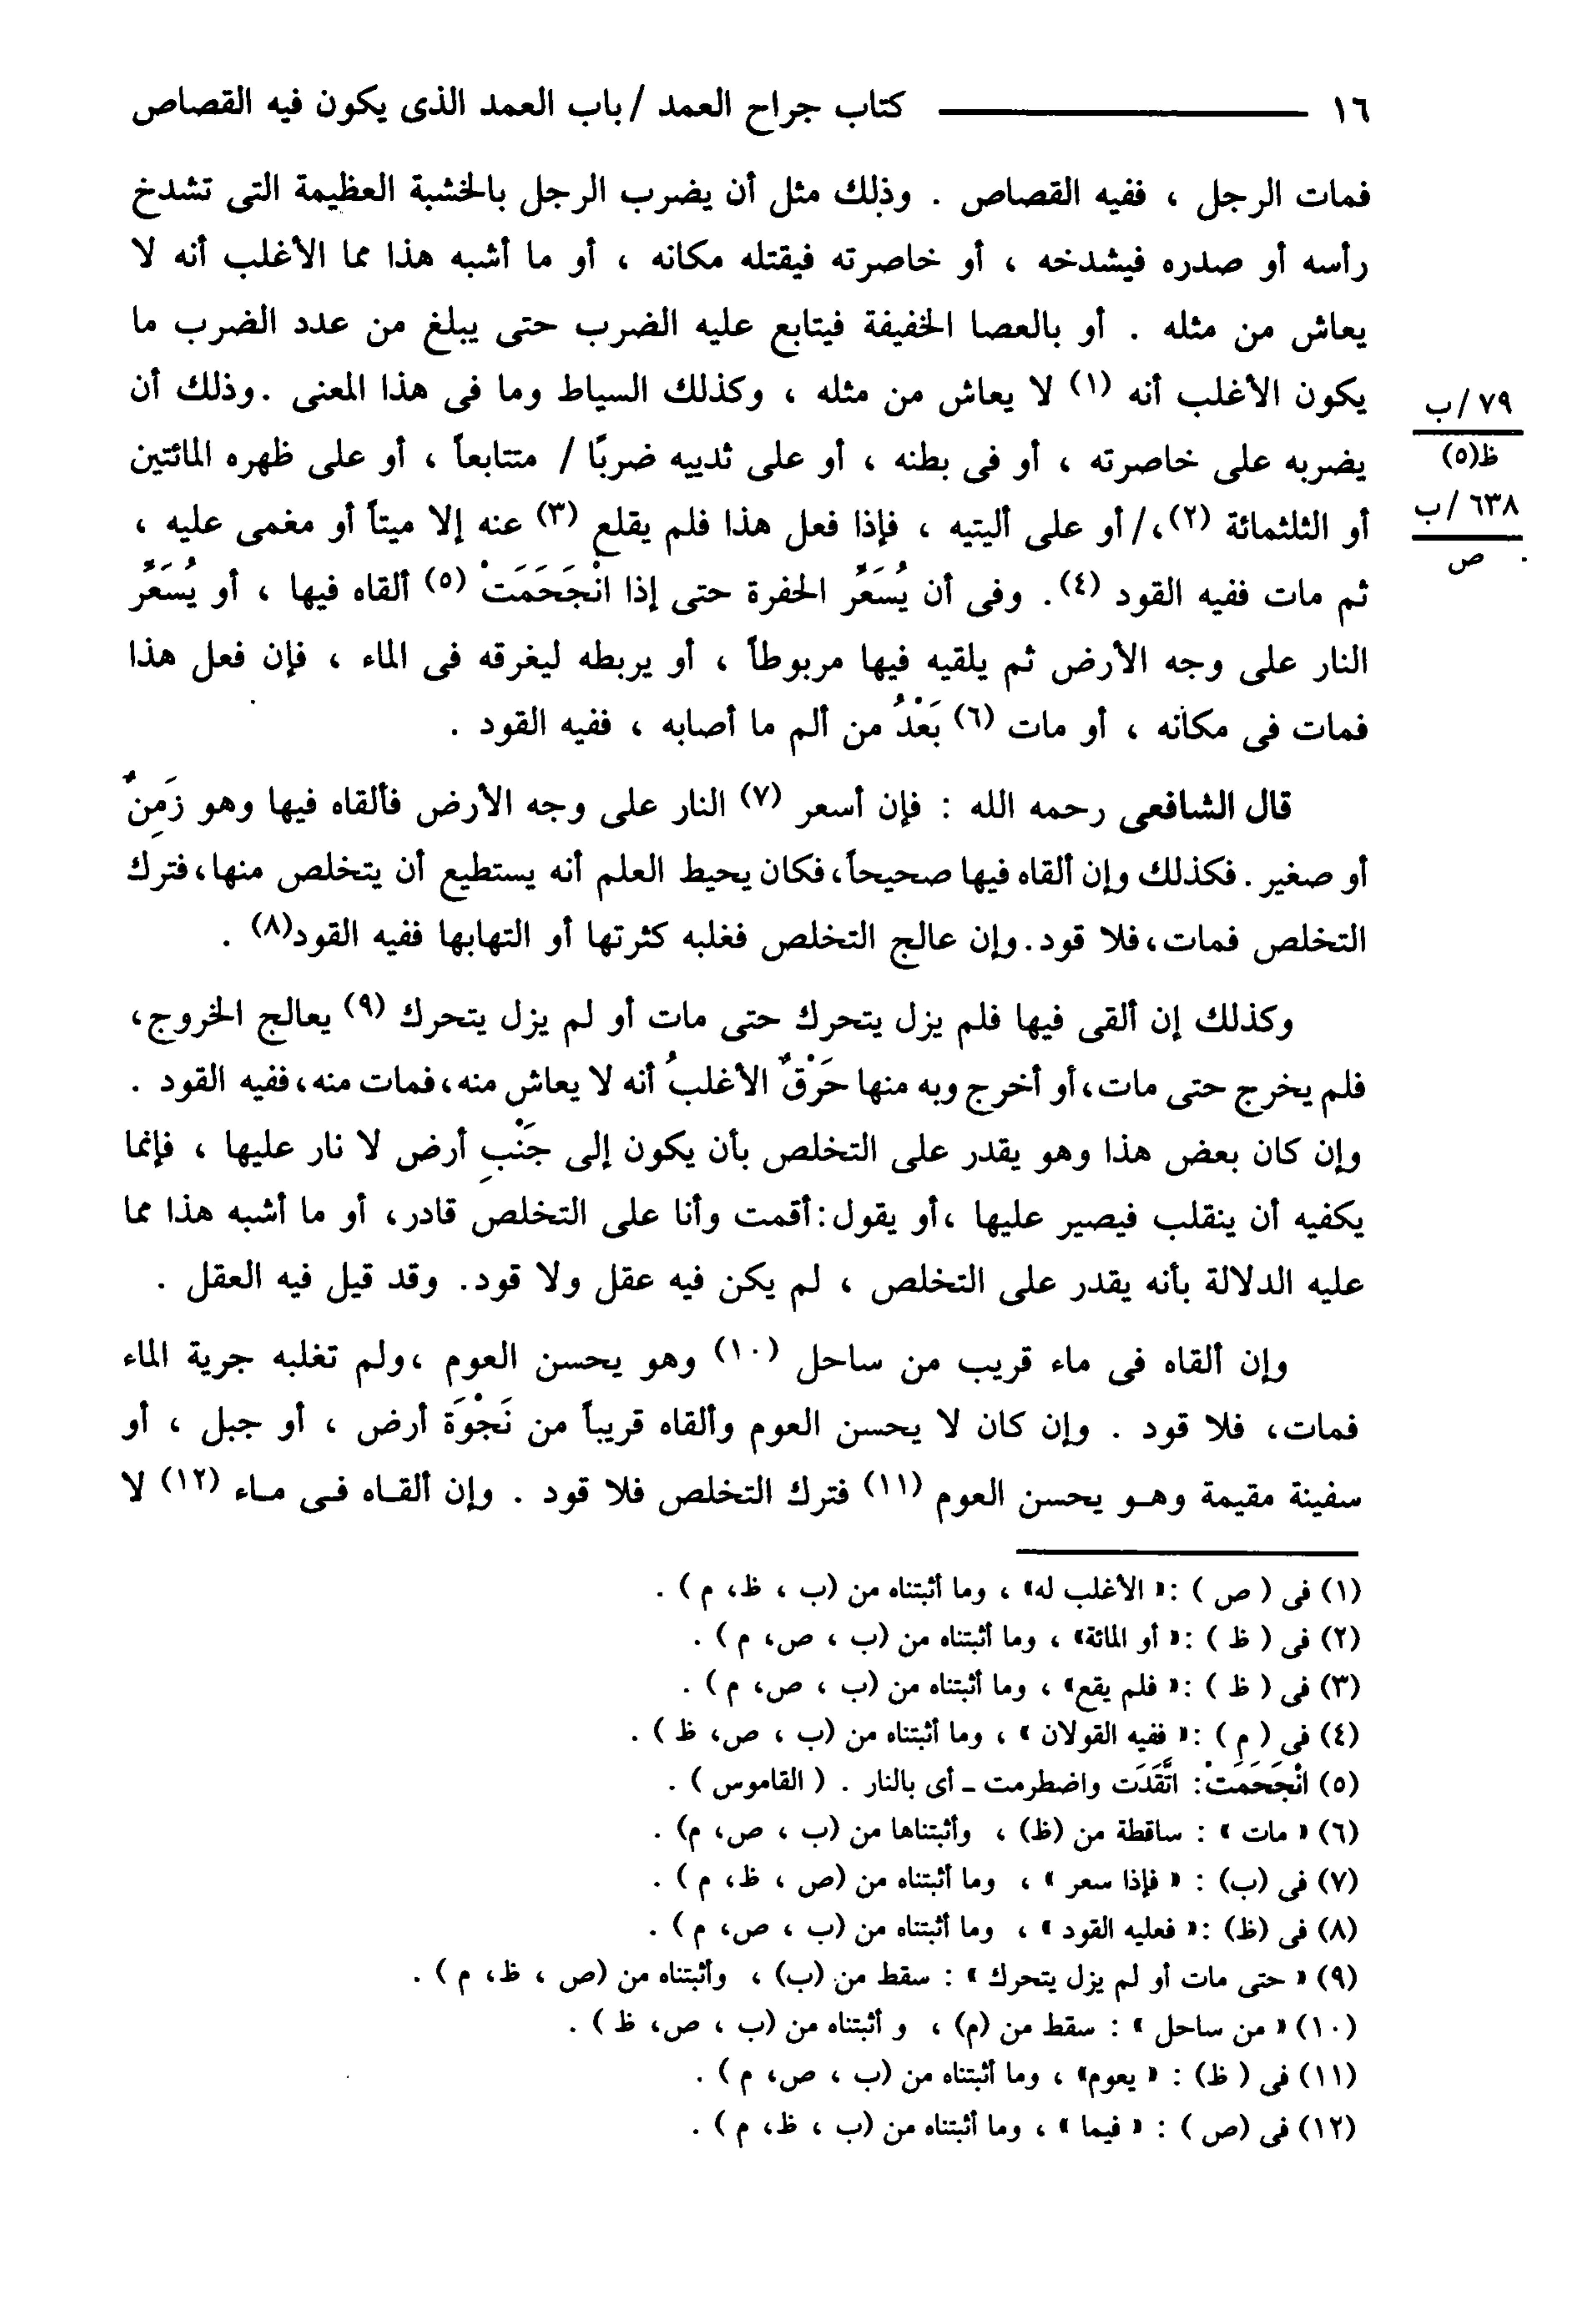 ١٦ كتاب جراح العمد / باب العمد الذى يكون فيه القصاص
فمات الرجل ، ففيه القصاص . وذلك مثل أن يضرب الرجل بالخشبة العظيمة التى تشدخ
رأسه أو صدره فيشدخه ، أو خاصرته فيقتله مكانه ، أو ما أشبه هذا مما الأغلب أنه لا
يعاش من مثله . أو بالعصا الخفيفة فيتابع عليه الضرب حتى يبلغ من عدد الضرب ما
يكون الأغلب أنه (١) لا يعاش من مثله ، وكذلك السياط وما فى هذا المعنى . وذلك أن
٧٩/ب
ظ(٥)
يضربه على خاصرته ، أو فى بطنه ، أو على ثدييه ضربًا / متتابعاً ، أو على ظهره المائتين
٦٣٨/ب
ص
أو الثلثمائة (٢)،/ أو على أليتيه ، فإذا فعل هذا فلم يقلع (٣) عنه إلا ميتاً أو مغمى عليه ،
ثم مات ففيه القود (٤). وفى أن يُسَعِّر الحفرة حتى إذا انْجَحَمَتْ (٥) ألقاه فيها ، أو يُسَعِّر
النار على وجه الأرض ثم يلقيه فيها مربوطاً ، أو يربطه ليغرقه فى الماء ، فإن فعل هذا
فمات فى مكانه ، أو مات (٦) بَعْدُ من ألم ما أصابه ، ففيه القود .
قال الشافعى رحمه الله : فإن أسعر (٧) النار على وجه الأرض فألقاه فيها وهو زَمِنٌ
أو صغير . فكذلك وإن ألقاه فيها صحيحاً، فكان يحيط العلم أنه يستطيع أن يتخلص منها، فترك
التخلص فمات، فلا قود. وإن عالج التخلص فغلبه كثرتها أو التهابها ففيه القود(٨) .
وكذلك إن ألقى فيها فلم يزل يتحرك حتى مات أو لم يزل يتحرك (٩) يعالج الخروج،
فلم يخرج حتى مات، أو أخرج وبه منها حَرْقٌ الأغلبُ أنه لا يعاش منه، فمات منه، ففيه القود .
وإن كان بعض هذا وهو يقدر على التخلص بأن يكون إلى جَنْبِ أرض لا نار عليها ، فإنما
يكفيه أن ينقلب فيصير عليها ، أو يقول: أقمت وأنا على التخلص قادر، أو ما أشبه هذا مما
عليه الدلالة بأنه يقدر على التخلص ، لم يكن فيه عقل ولا قود. وقد قيل فيه العقل .
وإن ألقاه فى ماء قريب من ساحل (١٠) وهو يحسن العوم ، ولم تغلبه جرية الماء
فمات، فلا قود . وإن كان لا يحسن العوم وألقاه قريباً من نَجْوَة أرض ، أو جبل ، أو
سفينة مقيمة وهـو يحسن العوم (١١) فترك التخلص فلا قود . وإن ألقـاه فـى مـاء (١٢) لا
(١) فى ( ص ) :« الأغلب له» ، وما أثبتناه من (ب ، ظ، م ) .
(٢) فى ( ظ ) :« أو المائة» ، وما أثبتناه من (ب ، ص، م ) .
(٣) فى ( ظ ) :« فلم يقع» ، وما أثبتناه من (ب ، ص، م ) .
(٤) فى ( م ) :« ففيه القولان » ، وما أثبتناه من (ب ، ص، ظ ) .
(٥) انْجَحَمَتْ: اتَّقَدَت واضطرمت ـ أى بالنار . ( القاموس ) .
(٦) « مات » : ساقطة من (ظ) ، وأثبتناها من (ب ، ص، م) .
(٧) فى (ب) : « فإذا سعر » ، وما أثبتناه من (ص ، ظ، م ) .
(٨) فى (ظ) :« فعليه القود » ، وما أثبتناه من (ب ، ص، م ) .
(٩) « حتى مات أو لم يزل يتحرك » : سقط من (ب) ، وأثبتناه من (ص ، ظ، م ) .
(١٠) « من ساحل » : سقط من (م) ، و أثبتناه من (ب ، ص، ظ ) .
(١١) فى ( ظ) : « يعوم» ، وما أثبتناه من (ب ، ص، م ) .
(١٢) فى (ص ) : « فيما » ، وما أثبتناه من (ب ، ظ، م ) .